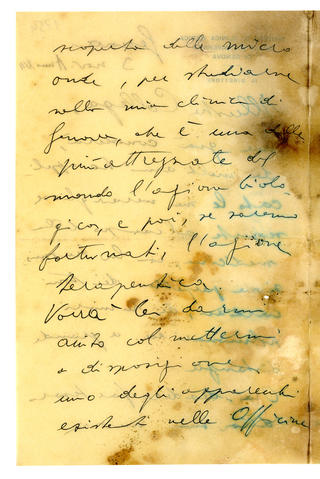 scoperto delle micro
onde, per studiarne
nella mia clinica di
Genova, che è una delle
più attrezzate del
mondo l'azione biolo
gica, e poi, se saremo
fortunati, l'azione
terapeutica.
Vorrà Lei darmi
aiuto col mettermi
a disposizione
uno degli apparecchi
esistenti nelle Officine